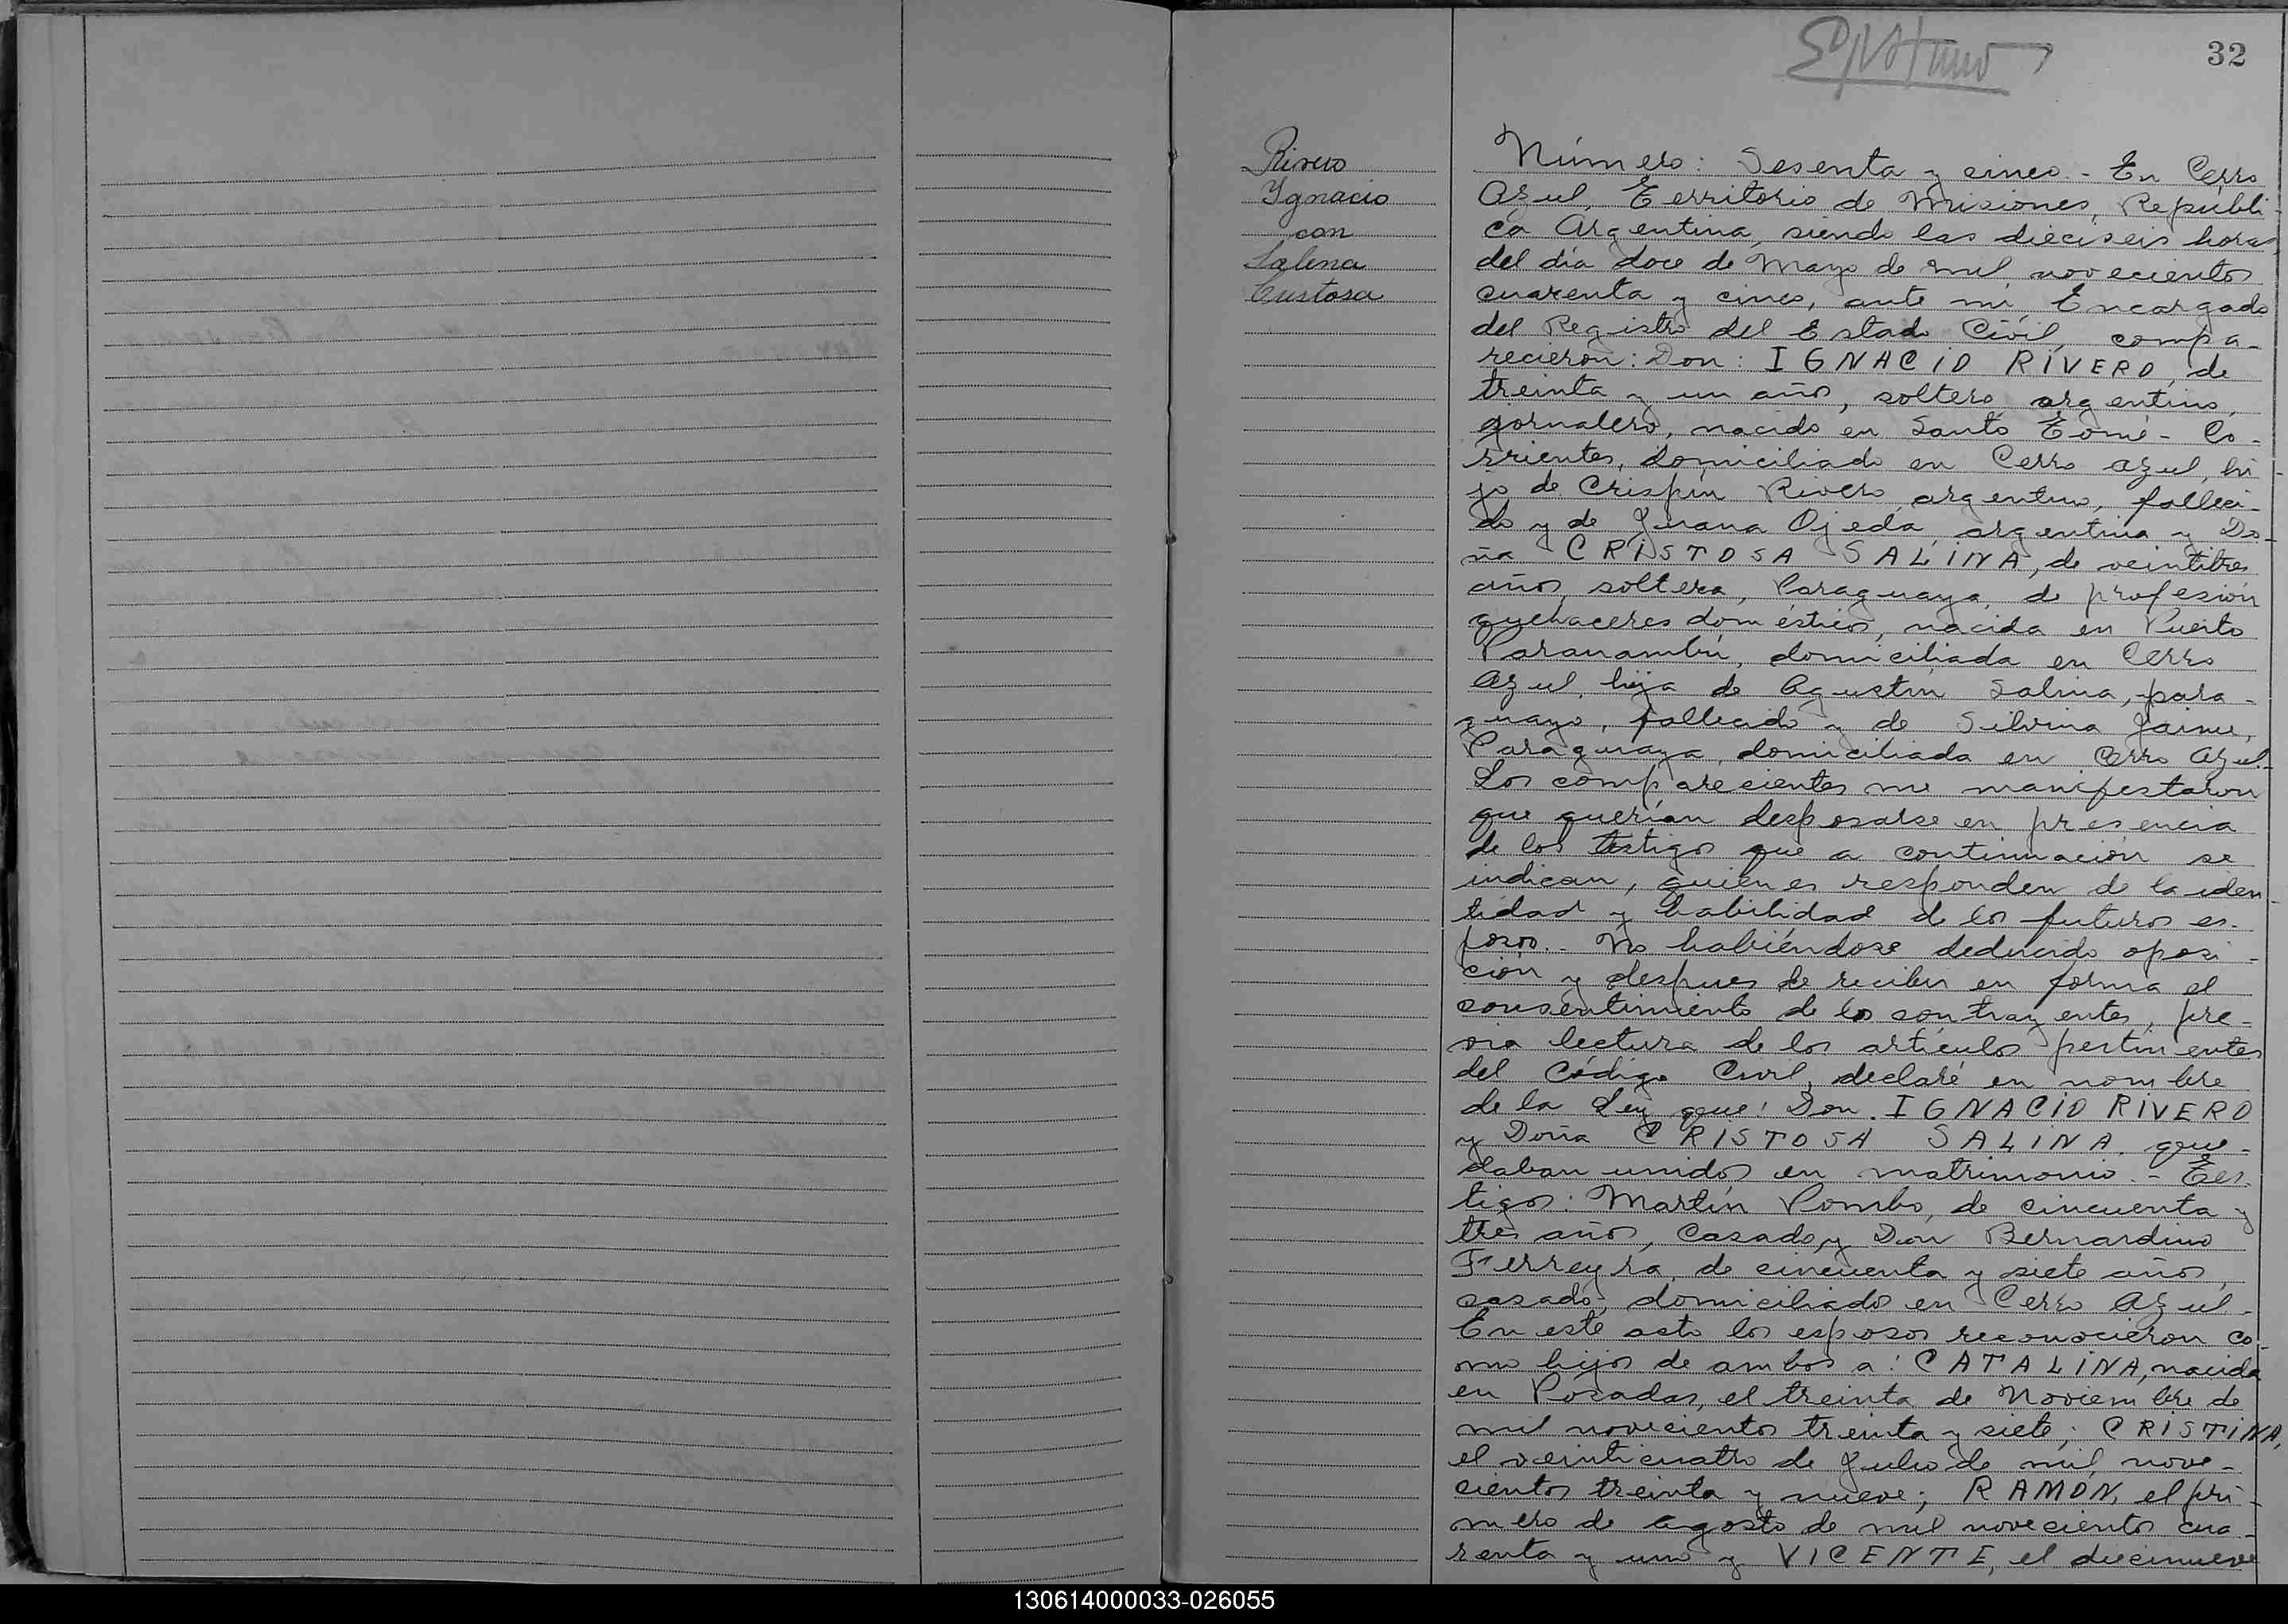 32
Rivero
Ygnacio
con
Salina
Cristosa
Número: Sesenta y cinco.- En Cerro
Azul, Territorio de Misiones, Repúbli-
ca Argentina, siendo las dieciseis horas,
del día doce de Mayo de mil novecientos
cuarenta y cinco, ante mí Encargado
del Registro del Estado Civil, compa-
recieron: Don: IGNACIO RIVERO, de
treinta y un años, soltero, argentino,
jornalero, nacido en Santo Tomé - Co-
rrientes, domiciliado en Cerro Azul, hi-
jo de Crispín Rivero, argentino, falleci-
do y de Juana Ojeda, argentina y Do-
ña CRISTOSA SALINA, de veintitres
años, soltera, Paraguaya, de profesión
quehaceres domésticos, nacida en Puerto
Paranambú, domiciliada en Cerro
Azul, hija de Agustín Salina, para-
guayo, fallecido y de Silvina Jaime,
Paraguaya, domiciliada en Cerro Azul.-
Los comparecientes me manifestaron
que querían desposarse en presencia
de los testigos que a continuación se
indican, quienes responden de la iden-
tidad y habilidad de los futuros es-
posos.- No habiéndose deducido oposi-
ción y despues de recibir en forma el
consentimiento de los contrayentes, pre-
via lectura de los artículos pertinentes
del Código Civil, declaré en nombre
de la Ley que: Don. IGNACIO RIVERO
y Doña CRISTOSA SALINA, que-
daban unidos en matrimonio.- Tes-
tigos: Martín Pombo, de cincuenta y
tres años, Casado, y Don Bernardino
Ferreyra, de cincuenta y siete años,
casado, domiciliados en Cerro Azul.-
En este acto los esposos reconocieron co-
mo hijos de ambos a: CATALINA, nacida
en Posadas, el treinta de Noviembre de
mil novecientos treinta y siete; CRISTINA,
el veinticuatro de Julio de mil nove-
cientos treinta y nueve; RAMON, el pri-
mero de agosto de mil novecientos cua-
renta y uno y VICENTE, el diecinueve
130614000033-026055